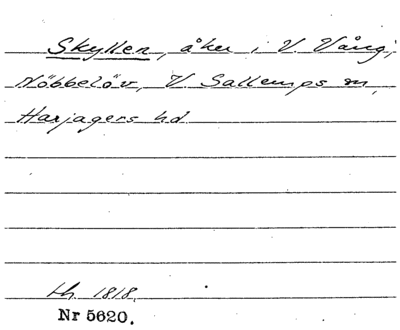 Skyllen, åker i V. Vång,
Nöbbelöv, V Sallerups sn,
Harjagers hd
lh. 1818.
Nr 5620.